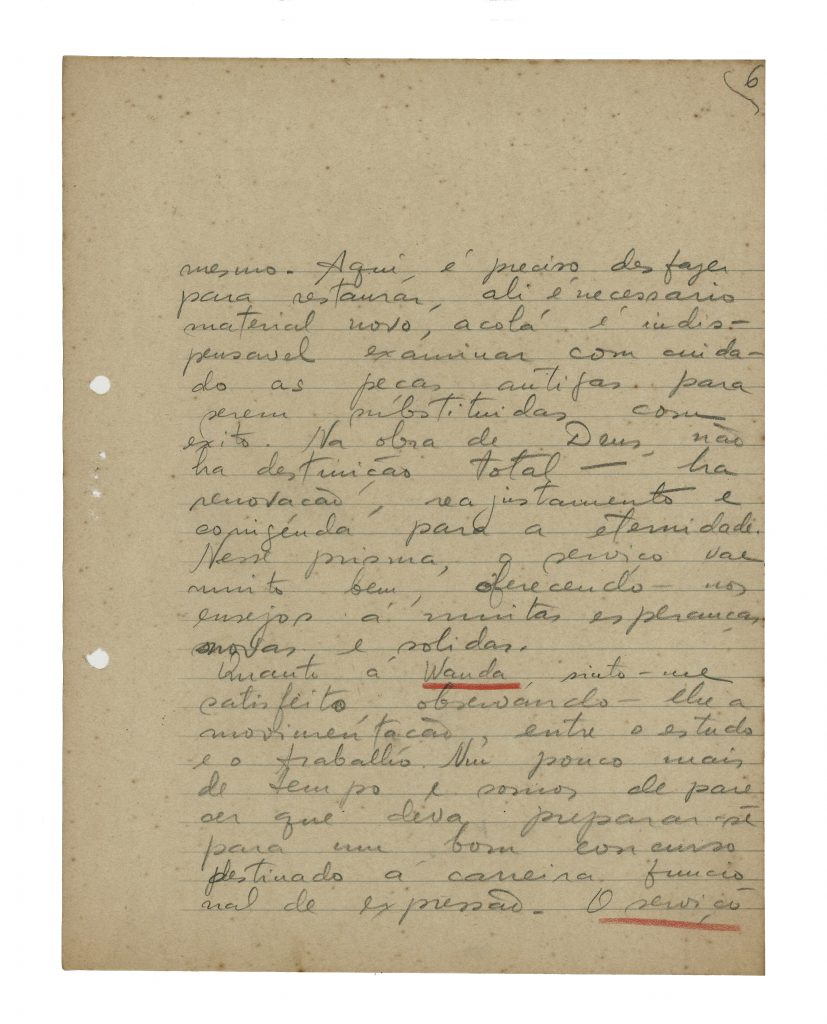 6
mesmo. Aqui, é preciso desfazer
para restaurar, ali é necessario
material novo, acolá é indis-
pensavel examinar com cuida-
do as peças antigas para
serem substituidas com
exito. Na obra de Deus, não
ha destruição total — ha
renovação, reajustamento e
corrigenda para a eternidade.
Nesse prisma, o serviço vae
muito bem, oferecendo-nos
ensejos á muitas esperanças
novas e solidas.
Quanto á Wanda, sinto-me
satisfeito observando-lhe a
movimentação, entre o estudo
e o trabalho. Um pouco mais
de tempo e somos de pare
cer que deva preparar-se
para um bom concurso
destinado á carreira funcio
nal de expressão. O serviço